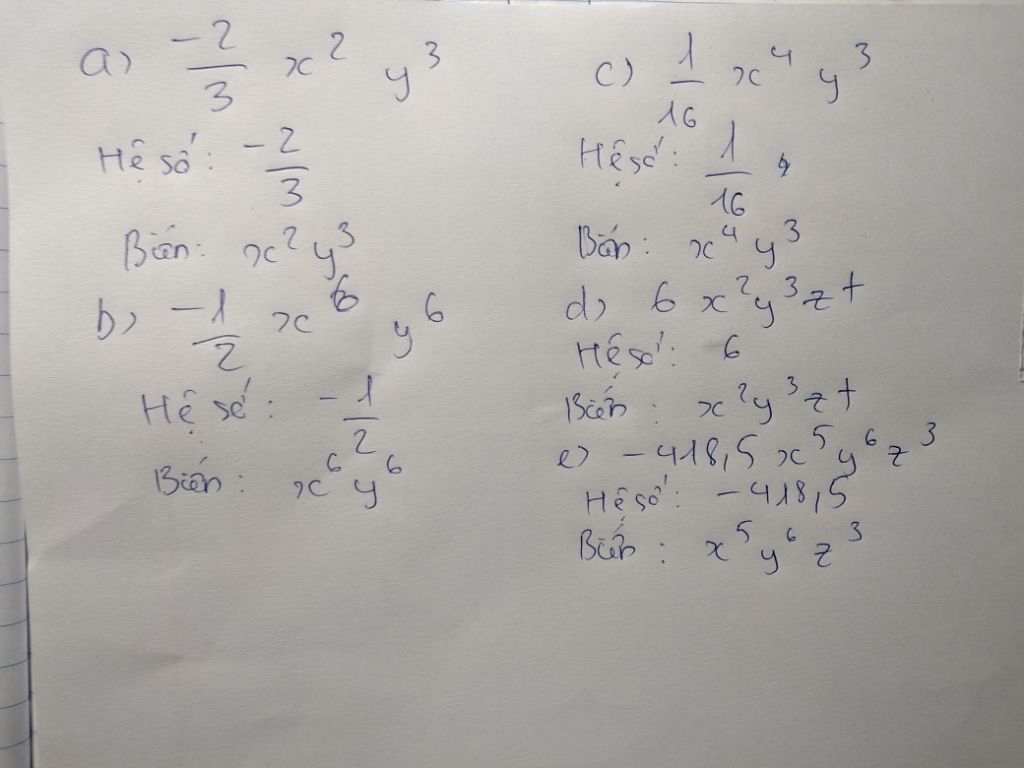 a) -2/3 x² y³
Hệ số: -2/3
Biến: x² y³
b) -1/2 x⁶ y⁶
Hệ số: -1/2
Biến: x⁶ y⁶
c) 1/16 x⁴ y³
Hệ số: 1/16
Biến: x⁴ y³
d) 6 x² y³ z t
Hệ số: 6
Biến: x² y³ z t
e) -418,5 x⁵ y⁶ z³
Hệ số: -418,5
Biến: x⁵ y⁶ z³